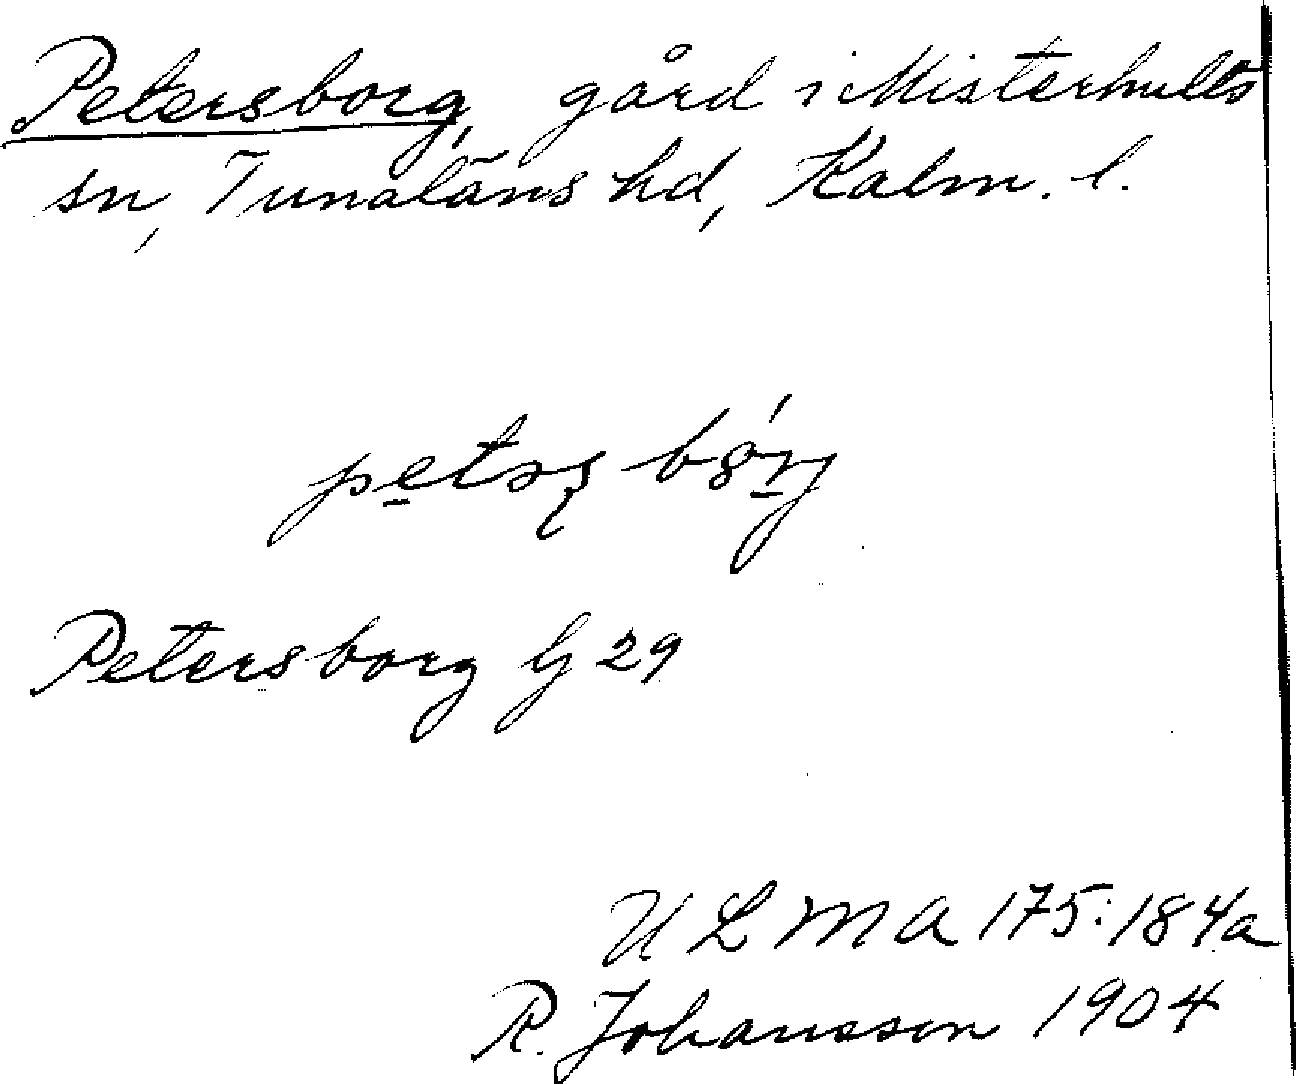 Petersborg, gård i Misterhults
sn, Tunaläns hd, Kalm. l.
Petersborg G 29
ULMA 175:184a
R. Johansson 1904